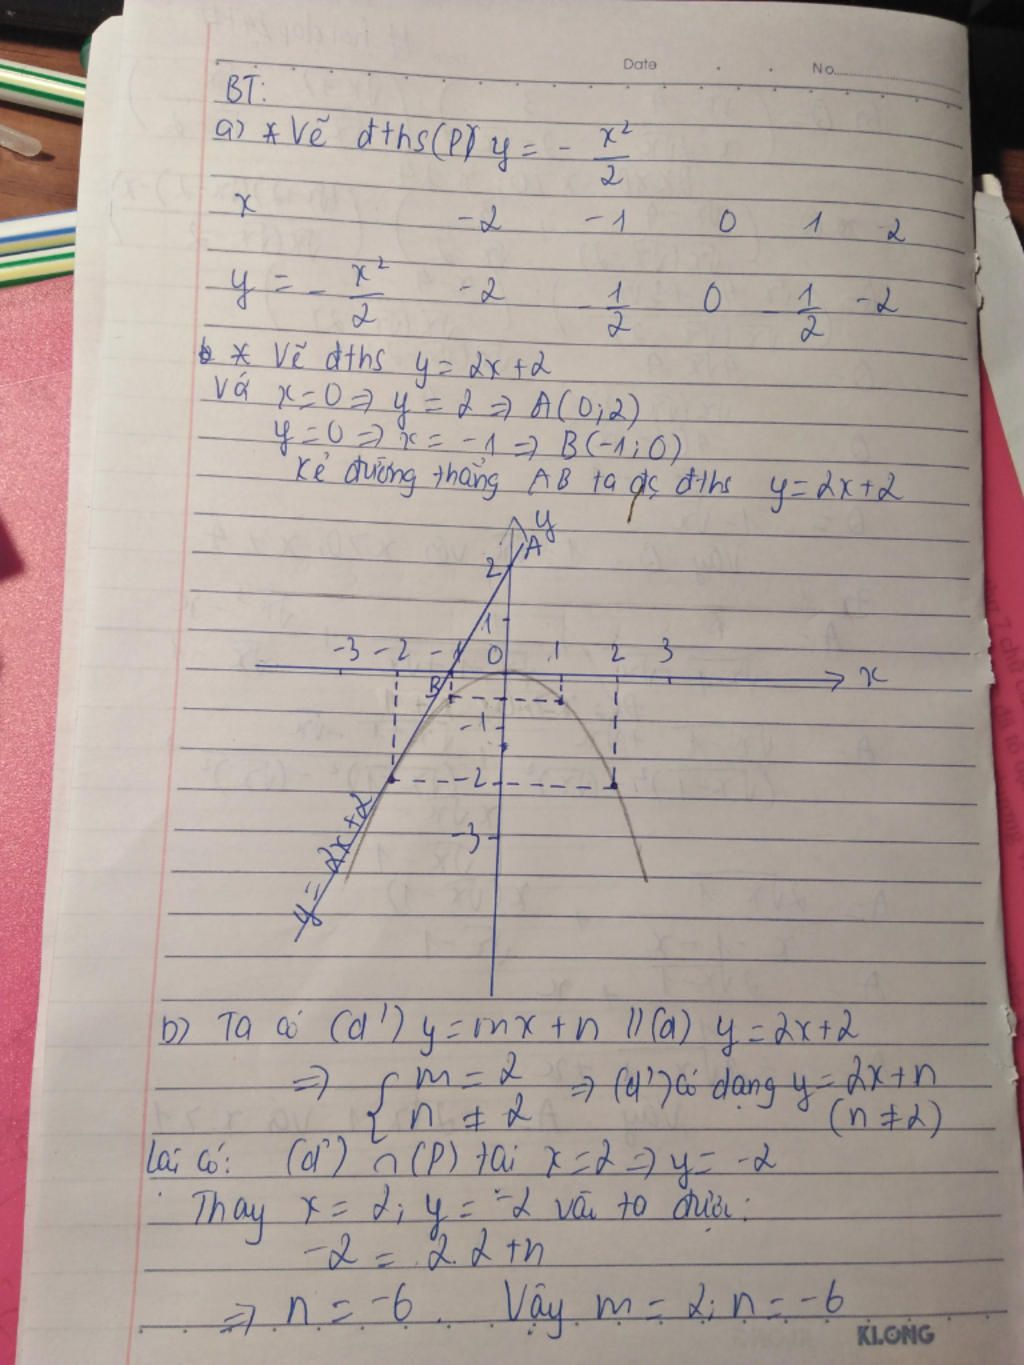 Date No.
BT:
a) * Vẽ đths (P) y = - x²/2
x -2 -1 0 1 2
y = - x²/2 -2 -1/2 0 -1/2 -2
* Vẽ đths y = 2x+2
Và x=0 => y = 2 => A(0;2)
y=0 => x = -1 => B(-1;0)
Kẻ đường thẳng AB ta đc đths y = 2x+2
y
A
2
1
-3 -2 -1 0 1 2 3
x
B
-1
-2
-3
y = 2x+2
b) Ta có (d') y = mx + n // (d) y = 2x+2
=> { m = 2 => (d') có dạng y = 2x+n
n ≠ 2 (n ≠ 2)
Lại có: (d') ∩ (P) tại x = 2 => y = -2
Thay x = 2; y = -2 vào ta được:
-2 = 2.2 + n
=> n = -6. Vậy m = 2; n = -6
KLONG